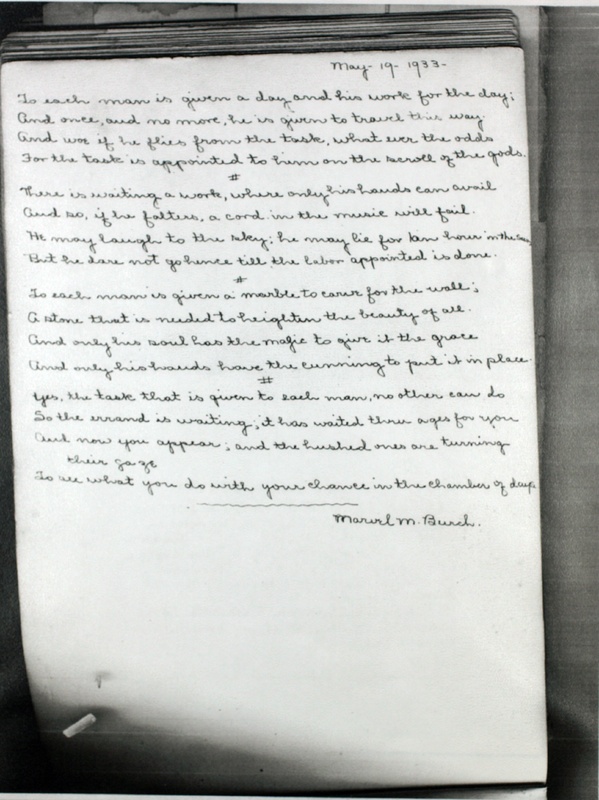 May - 19 - 1933 -
To each man is given a day and his work for the day;
And once, and no more, he is given to travel this way.
And woe if he flies from the task, what ever the odds
For the task is appointed to him on the scroll of the gods.
#
There is waiting a work, where only his hands can avail
And so, if he falters, a cord in the music will fail.
He may laugh to the sky; he may lie for an hour in the sun,
But he dare not go hence till the labor appointed is done.
#
To each man is given a marble to carve for the wall;
A stone that is needed to heighten the beauty of all.
And only his soul has the magic to give it the grace
And only his hands have the cunning to put it in place.
#
Yes, the task that is given to each man, no other can do
So the errand is waiting; it has waited thru ages for you
And now you appear; and the hushed ones are turning
their gaze
To see what you do with your chance in the chamber of days.
Marvel M. Burch.